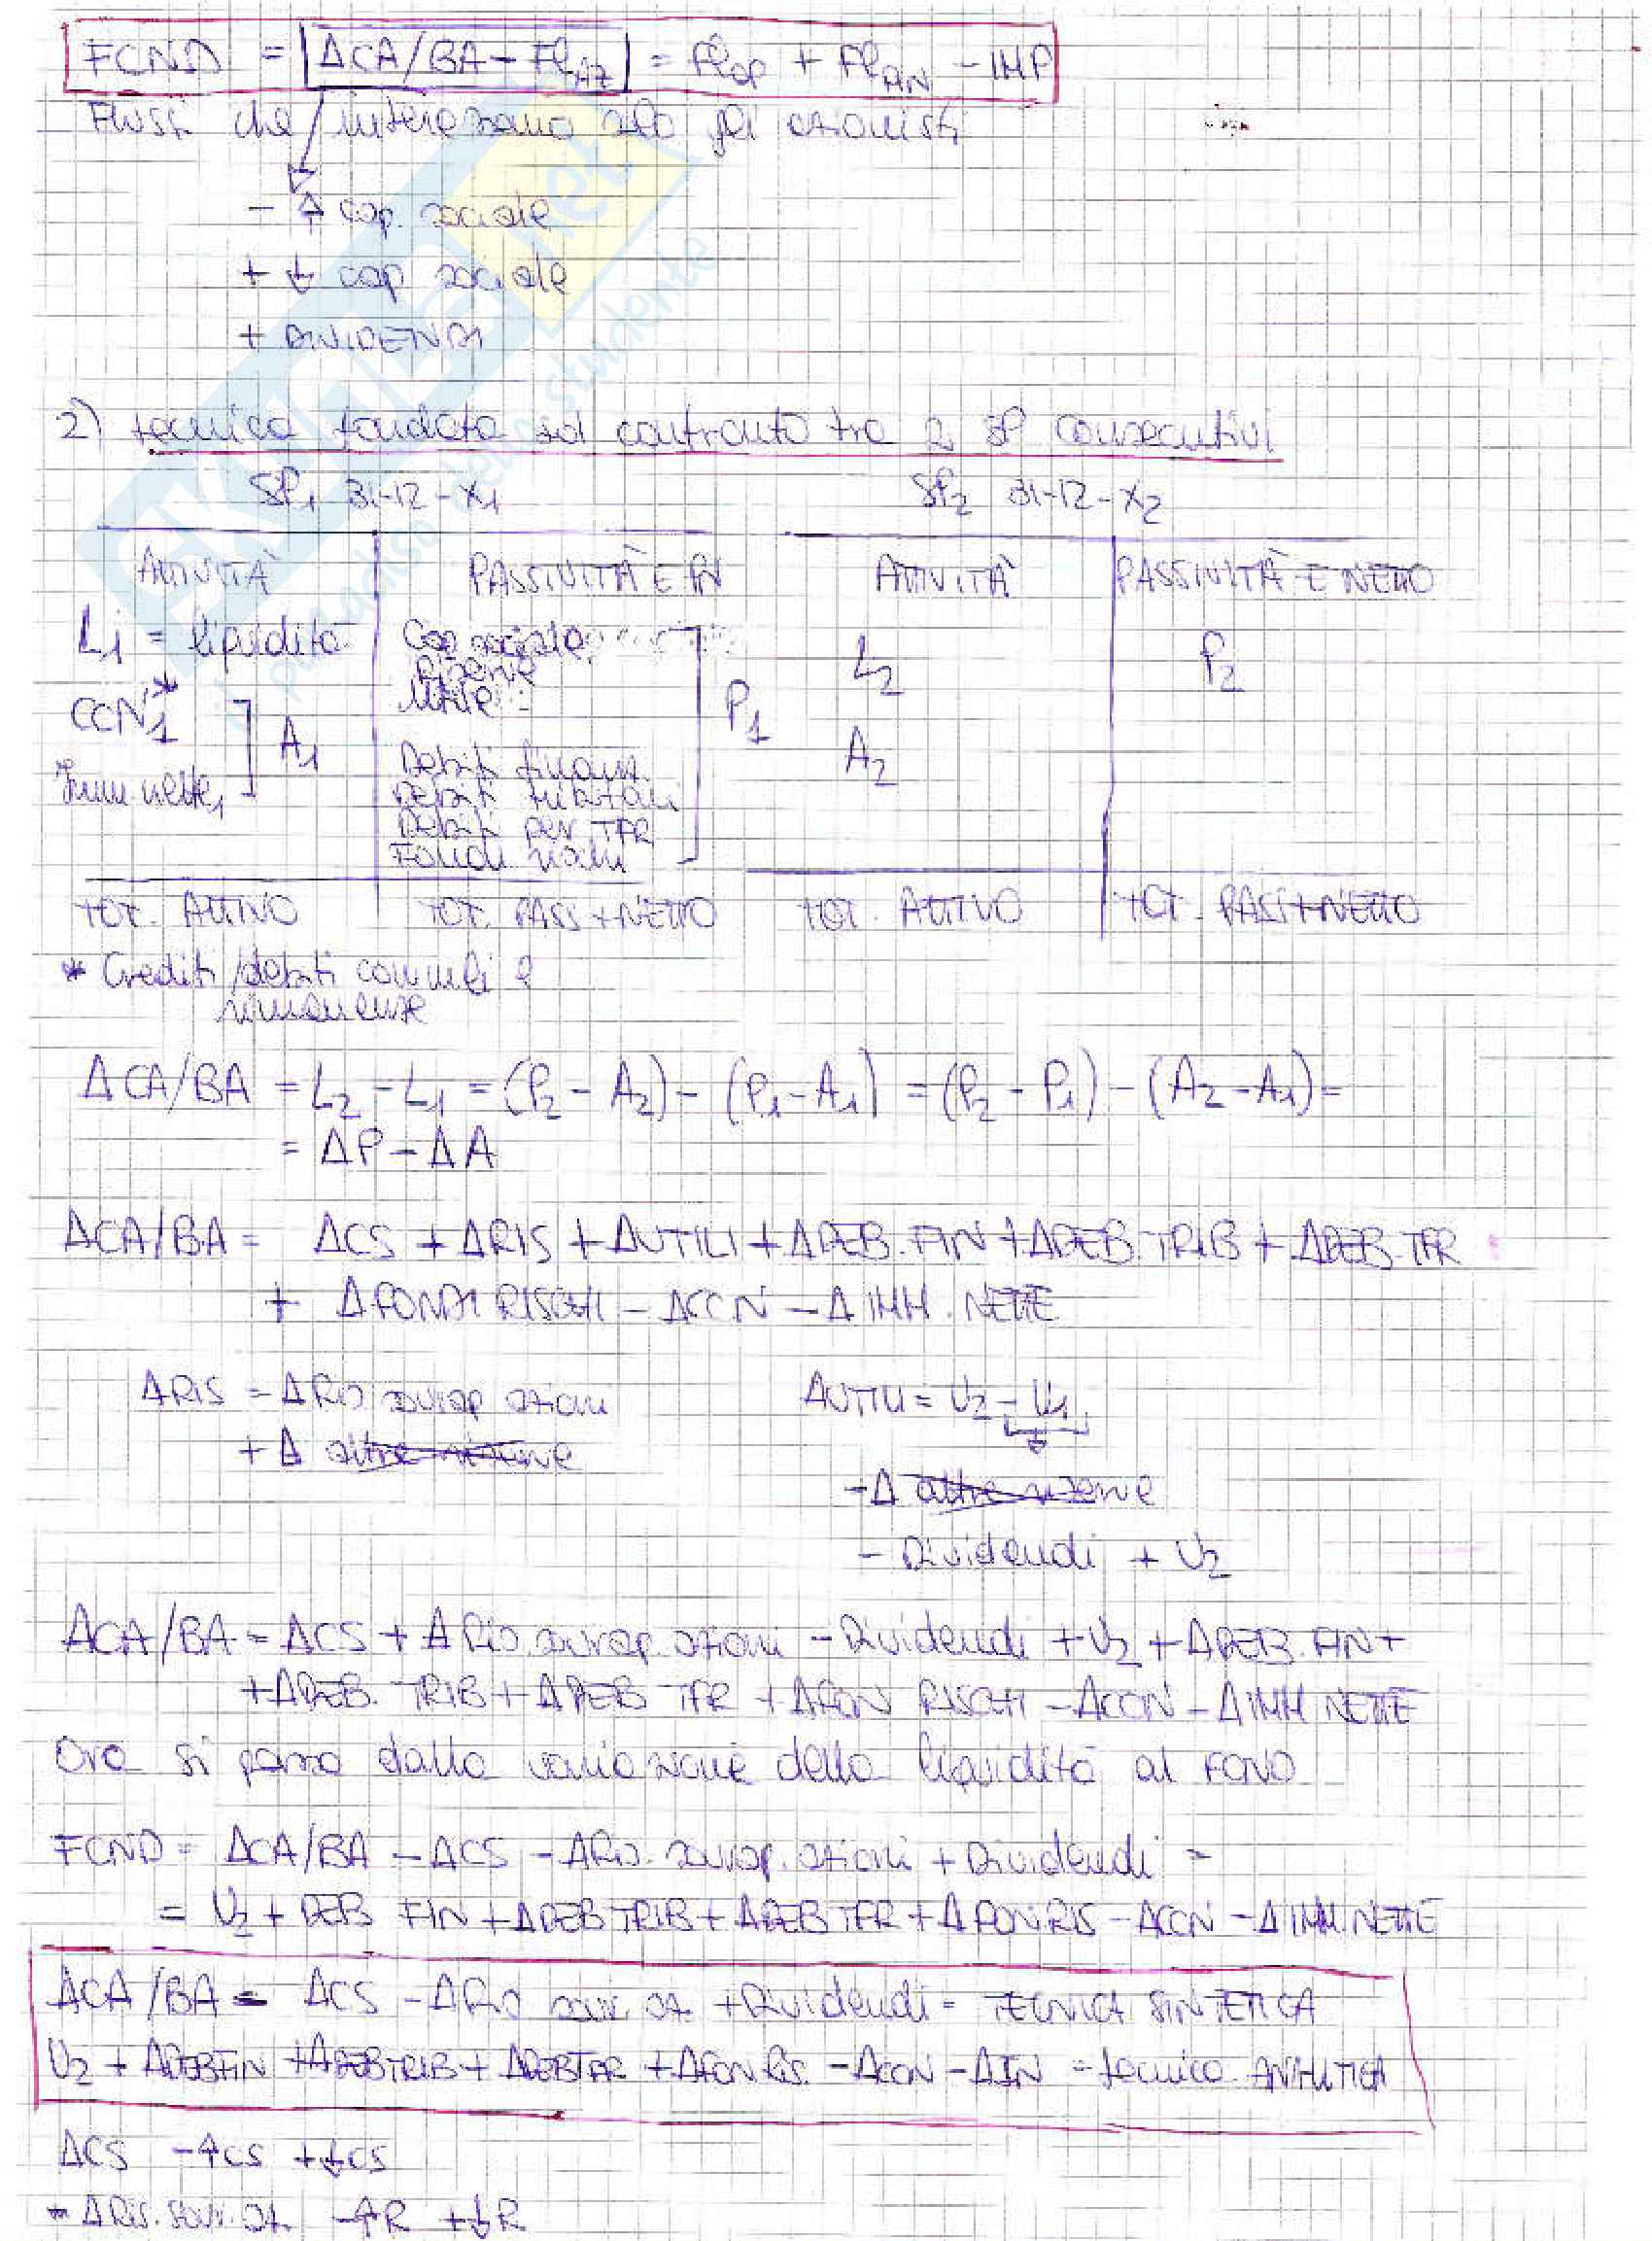 FCND = ΔCA/BA - Fl AZ = Fl OP + Fl FIN - IMP
Flussi che interessano solo gli azionisti
- ↑ cap. sociale
+ ↓ cap sociale
+ DIVIDENDI
2) tecnica fondata sul confronto tra 2 SP consecutivi
SP1 31-12-X1 SP2 31-12-X2
ATTIVITÀ PASSIVITÀ E PN ATTIVITÀ PASSIVITÀ E NETTO
L1 = liquidità Cap sociale L2 P2
Riserve
CCN1* Utile P1
A1 A2
Debiti finanz.
Imm nette1 Debiti tributari
Debiti per TFR
Fondi rischi
TOT. ATTIVO TOT. PASS + NETTO TOT. ATTIVO TOT. PASS + NETTO
* Crediti/debiti comm.li e
rimanenze
ΔCA/BA = L2 - L1 = (P2 - A2) - (P1 - A1) = (P2 - P1) - (A2 - A1) =
= ΔP - ΔA
ΔCA/BA = ΔCS + ΔRIS + ΔUTILI + ΔDEB. FIN + ΔDEB. TRIB + ΔDEB. TFR
+ ΔFONDI RISCHI - ΔCCN - ΔIMM. NETTE
ΔRIS = ΔRis sovrap azioni ΔUTILI = U2 - U1
+ Δ altre riserve
- Δ altre riserve
- Dividendi + U2
ΔCA/BA = ΔCS + ΔRis. sovrap. azioni - Dividendi + U2 + ΔDEB. FIN +
+ ΔDEB. TRIB + ΔDEB TFR + ΔFON RISCHI - ΔCCN - ΔIMM NETTE
Ora si passa dalla variazione della liquidità al FCND
FCND = ΔCA/BA - ΔCS - ΔRis. sovrap. azioni + Dividendi =
= U2 + DEB FIN + ΔDEB TRIB + ΔDEB TFR + ΔFON RIS - ΔCCN - ΔIMM. NETTE
ΔCA/BA - ΔCS - ΔRis sovr az. + Dividendi = TECNICA SINTETICA
U2 + ΔDEBFIN + ΔDEBTRIB + ΔDEBTFR + ΔFON RIS. - ΔCCN - ΔIN = tecnica ANALITICA
ΔCS -↑CS +↓CS
* ΔRis. sovr. az. -↑R +↓R
SKUOLA.net
il paradiso dello studente